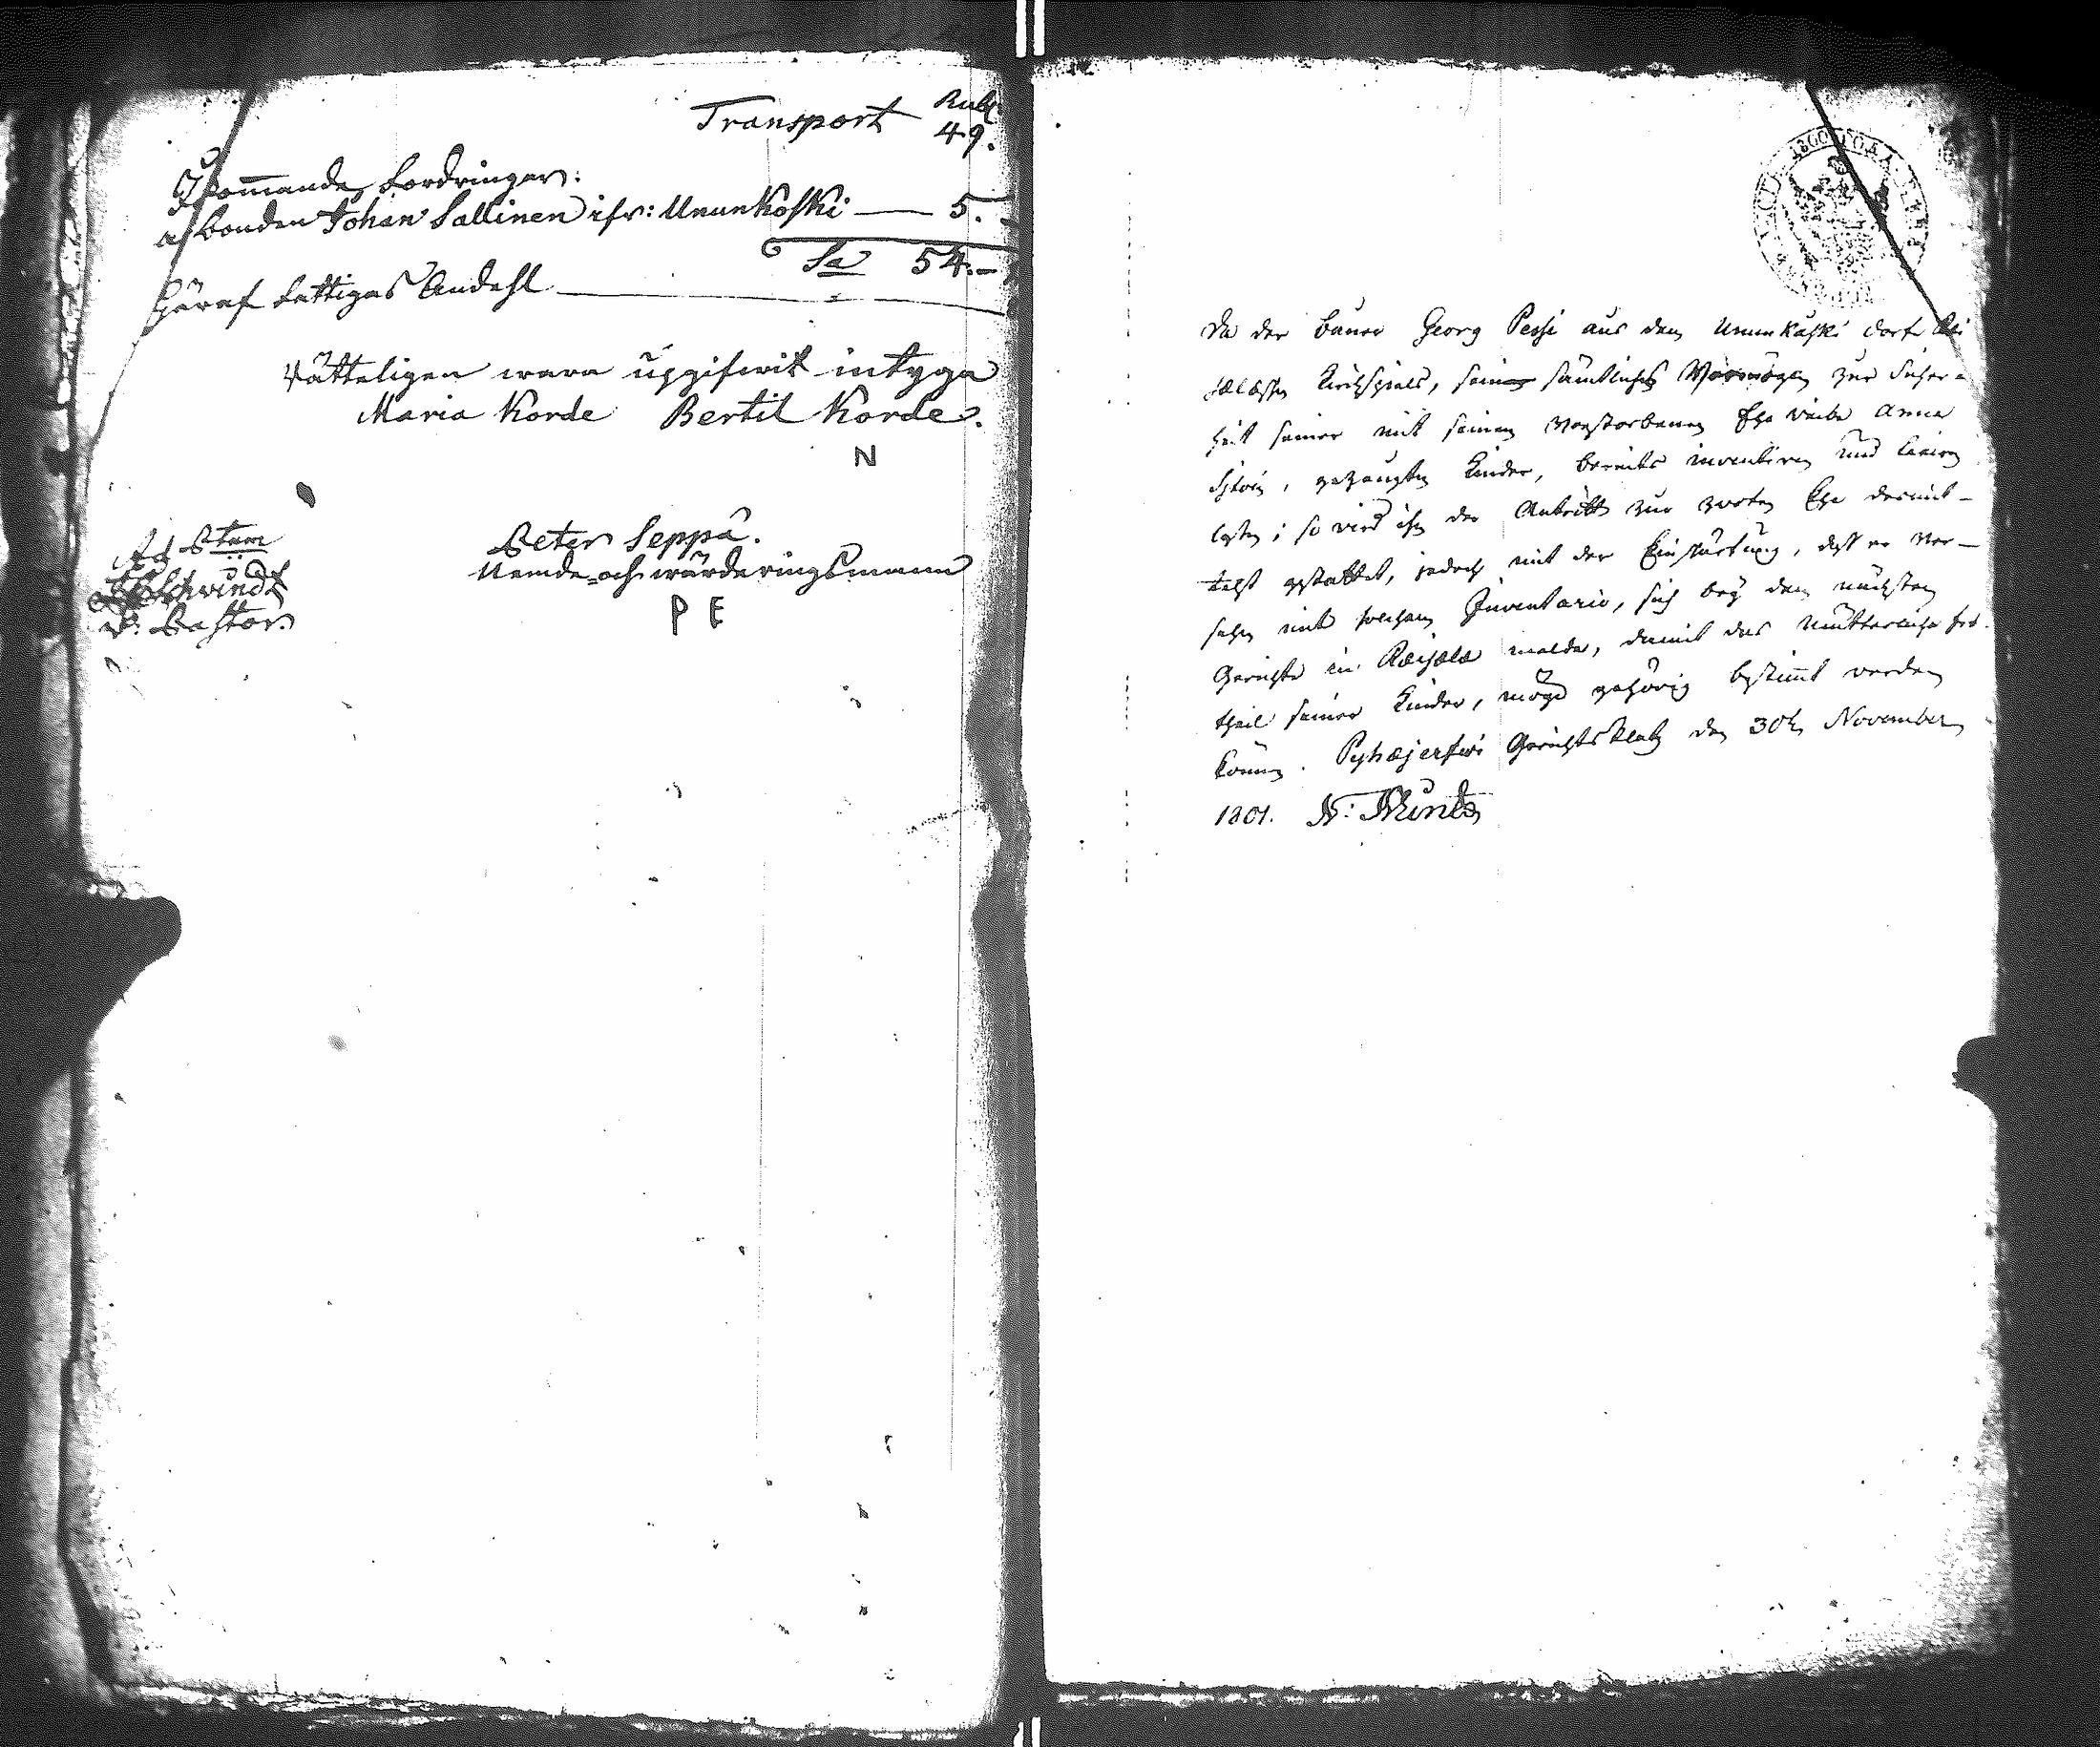 Transport Rubl.
49.
Inkommande fordringar:
af bonden Johan Sallinen ifr: Unnunkoski — 5.
Sa 54.—
Häraf fattigas Andehl
Rätteligen wara upgifwit intyga
Maria Korde Bertil Korde.
N
Peter Seppä.
Nemde- och wärderingsman
P E
Schwindt
v: Pastor.
Da der Bauer Georg Pessi aus dem Unnunkoski Dorf Rä
säläschen Kirchspiels, sein sämtliches Vermögen zur Sicher-
heit seiner mit seinem verstorbenen Ehe Weibe Anna
gezeugten Kinder, bereits inventiren und taxiren
lassen; so wird ihm der Antritt zur zweiten Ehe desmit-
telst gestattet, jedoch mit der Einschärfung, daß er ver-
sehen mit solchem Inventario, sich bey dem nächsten
Gerichte in Räisälä melde, damit das mütterliche Erb-
theil seiner Kinder, möge gehörig bestimmt werden
können. Pyhäjerfwi Gerichtsplatz den 30t. November
1801. N: